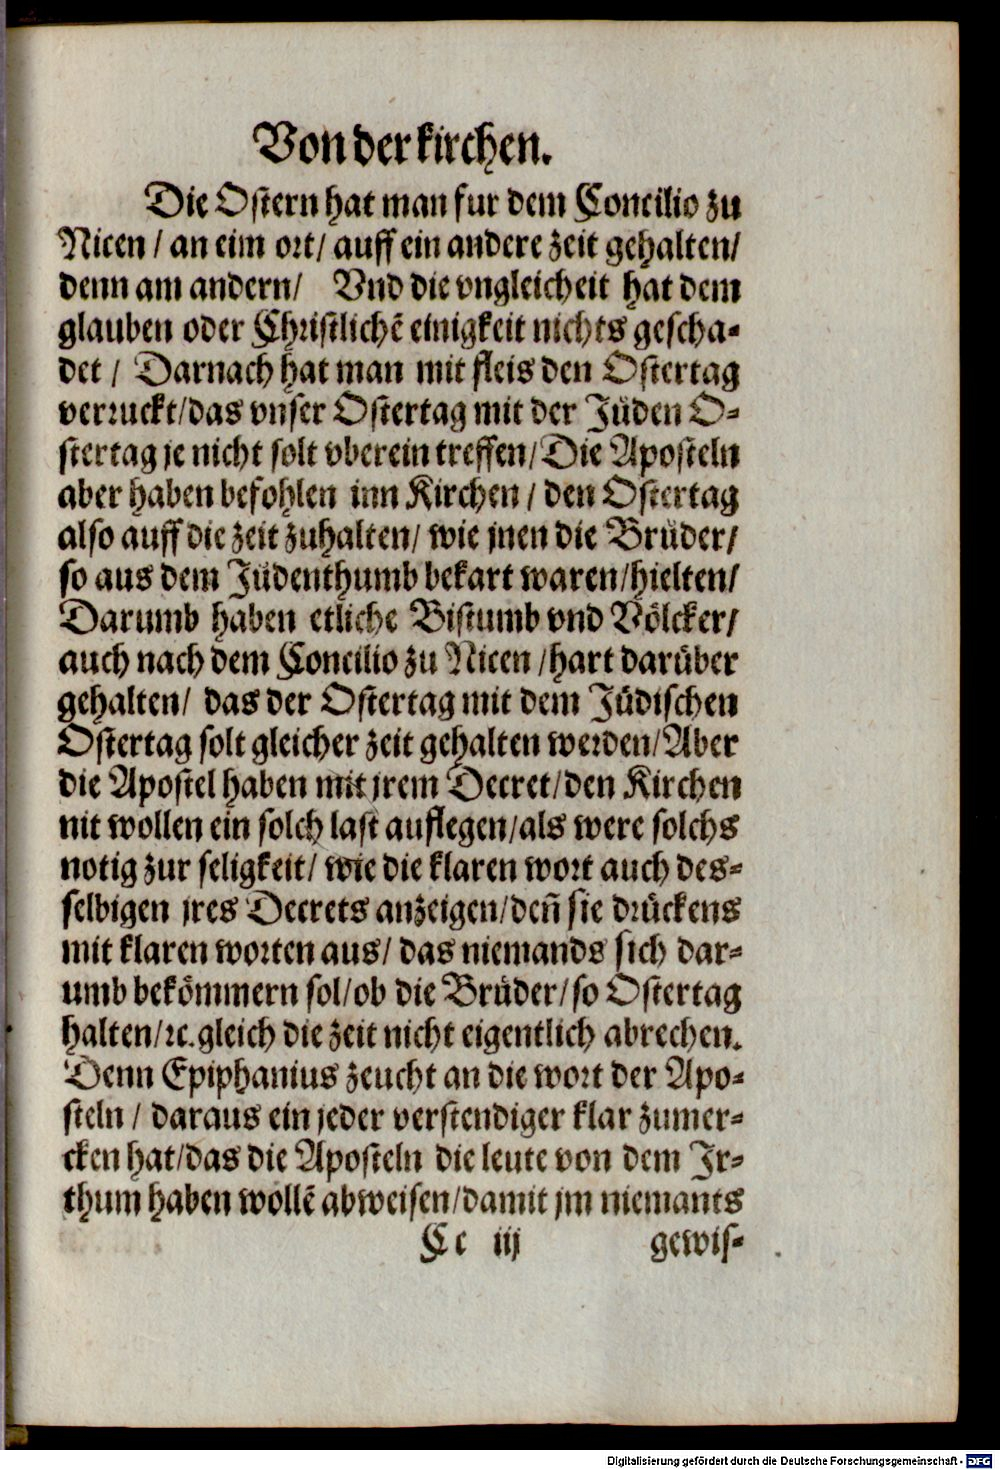 Von der kirchen.
Die Ostern hat man fur dem Concilio zu
Nicen / an eim ort / auff ein andere zeit gehalten /
denn am andern / Vnd die vngleicheit hat dem
glauben oder Christlichē einigkeit nichts gescha-
det / Darnach hat man mit fleis den Ostertag
verruckt / das vnser Ostertag mit der Jüden O-
stertag je nicht solt vberein treffen / Die Aposteln
aber haben befohlen inn Kirchen / den Ostertag
also auff die zeit zuhalten / wie jnen die Brüder /
so aus dem Jüdenthumb bekart waren / hielten /
Darumb haben etliche Bistumb vnd Völcker /
auch nach dem Concilio zu Nicen / hart darüber
gehalten / das der Ostertag mit dem Jüdischen
Ostertag solt gleicher zeit gehalten werden / Aber
die Apostel haben mit jrem Decret / den Kirchen
nit wollen ein solch last auflegen / als were solchs
notig zur seligkeit / wie die klaren wort auch des-
selbigen jres Decrets anzeigen / deñ sie drückens
mit klaren worten aus / das niemands sich dar-
umb bekömmern sol / ob die Brüder / so Ostertag
halten / ꝛc. gleich die zeit nicht eigentlich abrechen.
Denn Epiphanius zeucht an die wort der Apo-
steln / daraus ein jeder verstendiger klar zumer-
cken hat / das die Aposteln die leute von dem Jr-
thum haben wollē abweisen / damit jm niemants
Cc iij gewis-
Digitalisierung gefördert durch die Deutsche Forschungsgemeinschaft - DFG